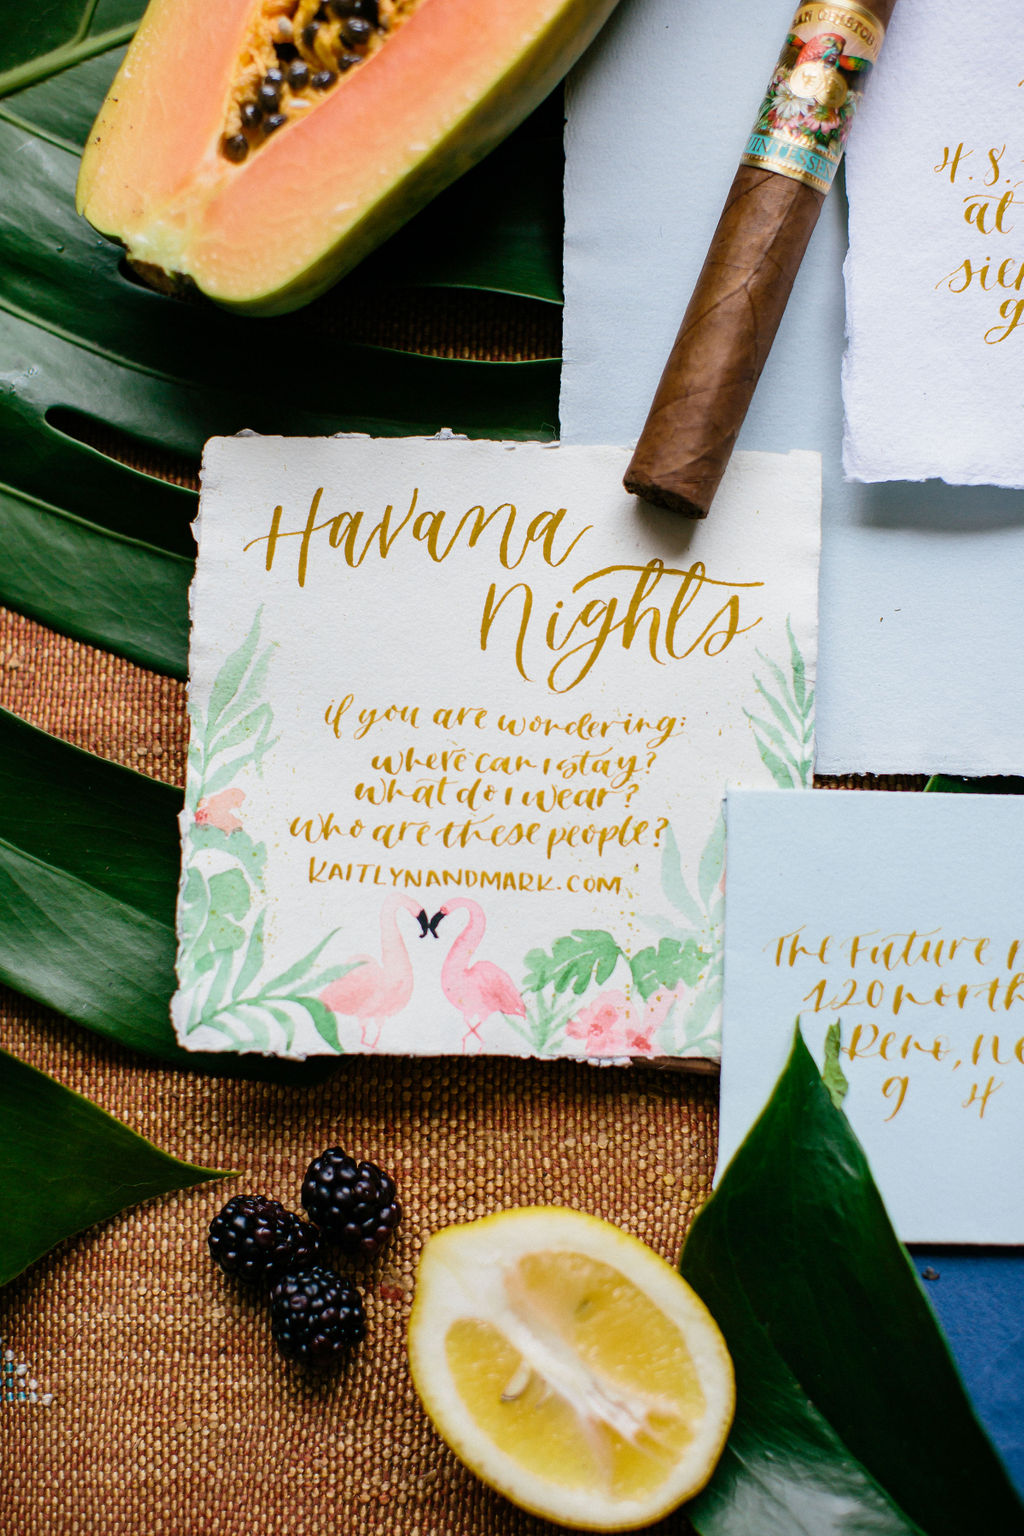 4. 8.
at
Havana
Nights
if you are wondering:
where can i stay?
what do i wear?
who are these people?
KAITLYNANDMARK.COM
The Future
120 north
Reno,
9 4